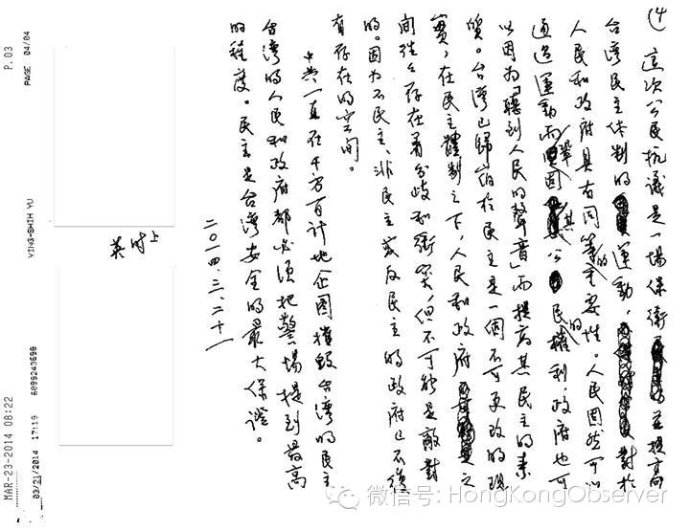 (4) 這次公民抗議是一場保衛並提高
台灣民主体制的運動,對於
人民和政府具有同等的重要性。人民固然可以
通过運動而鞏固其公民的權利,政府也可
以因为「聽到人民的聲音」而提高其民主的素
質。台灣已歸宿於民主是一個不可更改的現
實,在民主體制之下,人民和政府之
間往往存在着分歧和衝突,但不可能是敵對
的。因为不民主、非民主或反民主的政府已不復
有存在的空间。
中共一直在千方百計地企图摧毀台湾的民主
台湾的人民和政府都必須把警惕提到最高
的程度。民主是台湾安全的最大保證。
二〇一四、三、二十一
英时上
MAR-23-2014 08:22
P.03
03/21/2014 17:19 6099243690 YING-SHIH YU PAGE 04/04
微信号: HongKongObserver